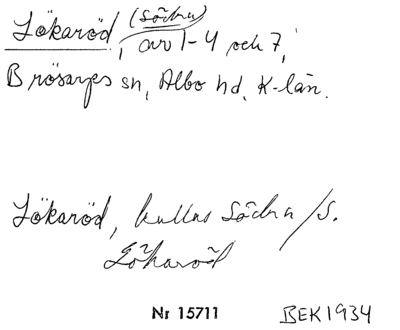 Lökaröd, (Södra) av 1-4 och 7,
Brösarps sn, Albo hd, K-län.
Lökaröd, kallas Södra / S.
Lökaröd
Nr 15711 BEK 1934